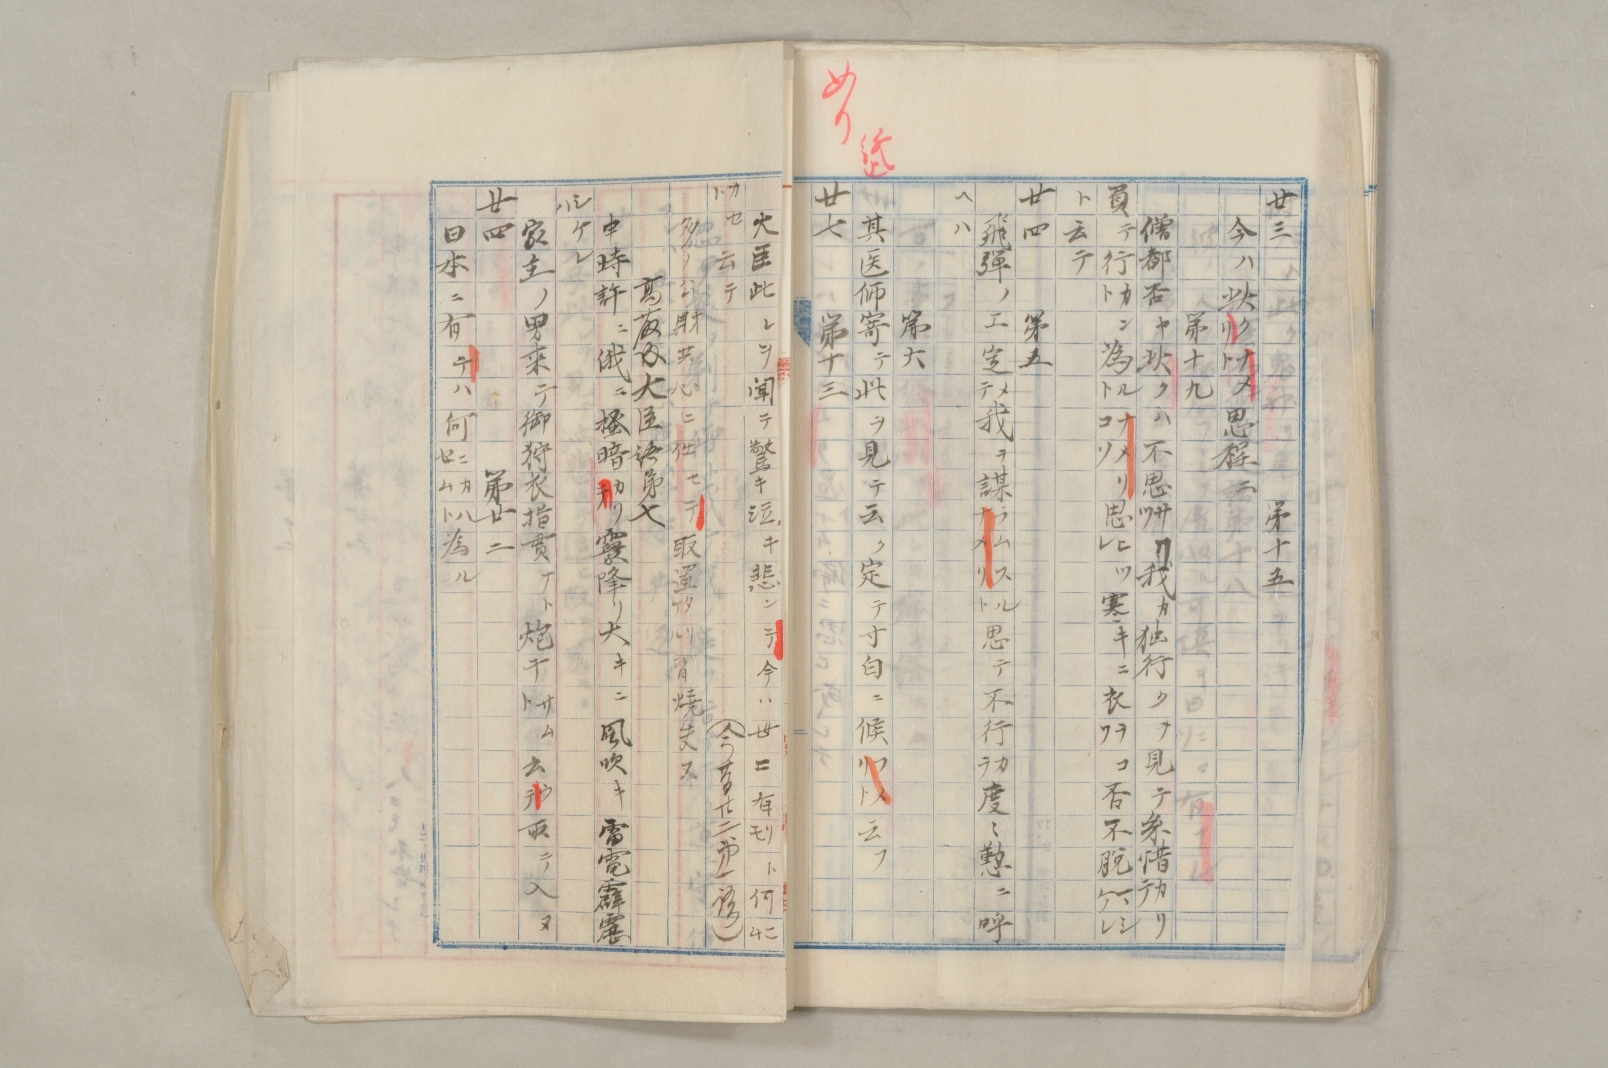 めり
廿三　第十五
今ハ此クナメリト思程ニ
第十九
僧都否ヤ此クハ不思ザリツ我カ独行クヲ見テ糸惜カリ
テ行カントト為ルナメリコソト思ヒツレ寒キニ衣ヲコ否不脱ハシケレ
ト云テ
廿四　第五
飛弾ノ工定テメ我ヲ謀ラムスルナメリト思テ不行ヲカ度〻懃ニ呼
ヘハ
第六
其医師寄テ此ヲ見テ云ク定テ寸白ニ候フメリト云フ
廿七　第十三
大臣此レヲ聞テ驚キ泣キ悲ンテ今ハ世ニ有モリト何ニ
カセト云テ
（今昔廿二第一語）
多ノ公財共心ニ任セテ取
大臣語第七
申時許ニ俄ニ掻暗カリテ霙降リ大キニ風吹キ雷電霹靂
シケレハ
家主ノ男来テ御狩衣指貫ナト炮干サムト云テ取テ入ヌ
廿四　第廿二
日本ニ有テハ何ニカハセムト為ル